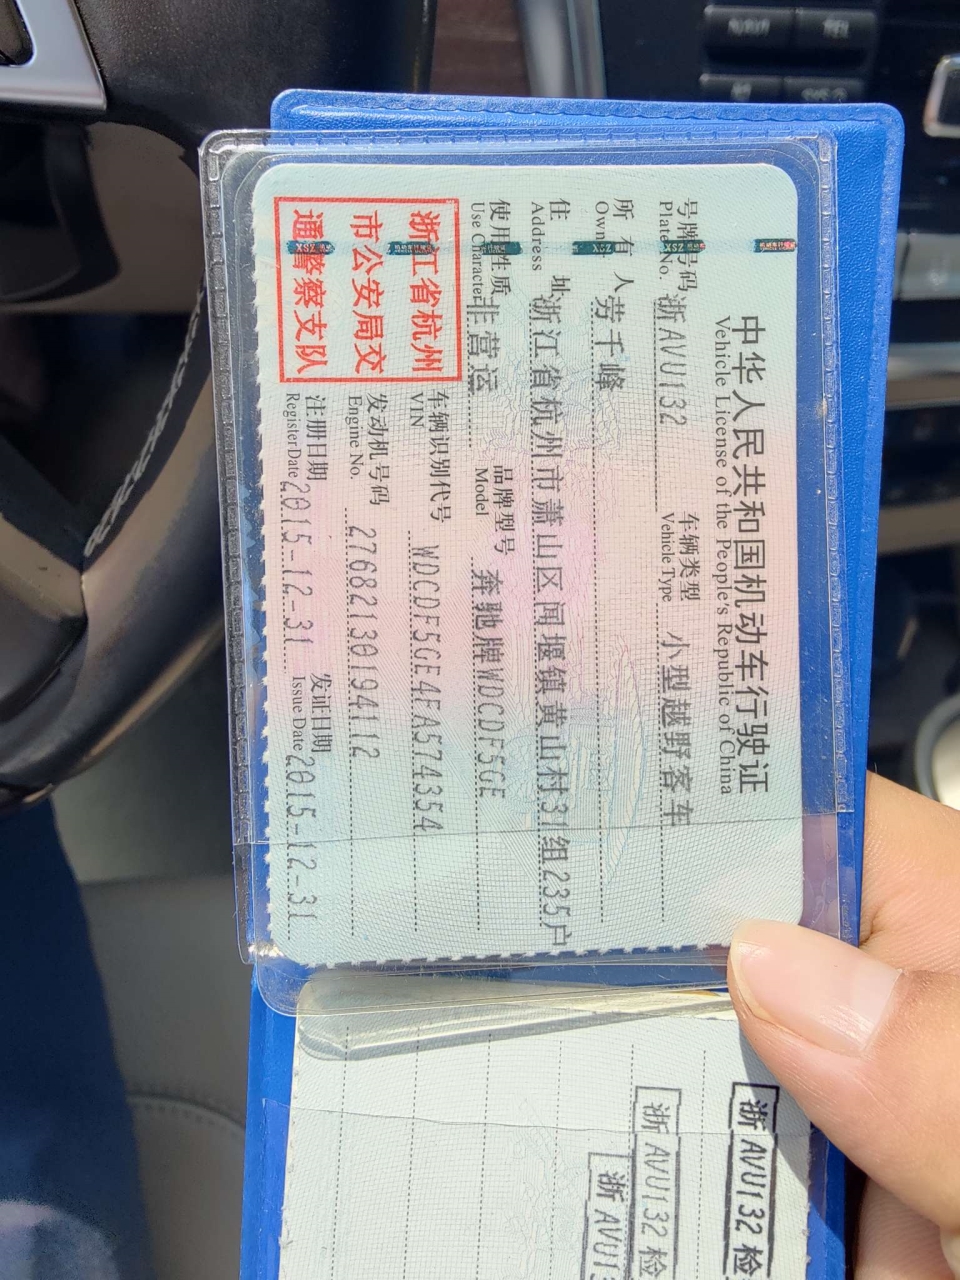 中华人民共和国机动车行驶证
Vehicle License of the People's Republic of China
号牌号码 浙AVU132 车辆类型 小型越野客车
Plate No. Vehicle Type
所有人 劳千峰
Owner
住址 浙江省杭州市萧山区闻堰镇黄山村31组235户
Address
使用性质 非营运 品牌型号 奔驰牌WDCDF5GE
Use Character Model
浙江省杭州
市公安局交
通警察支队
车辆识别代号 WDCDF5GE4FA574354
VIN
发动机号码 27682130194112
Engine No.
注册日期 2015-12-31 发证日期 2015-12-31
Register Date Issue Date
浙AVU132 检
浙AVU132 检
浙AVU13